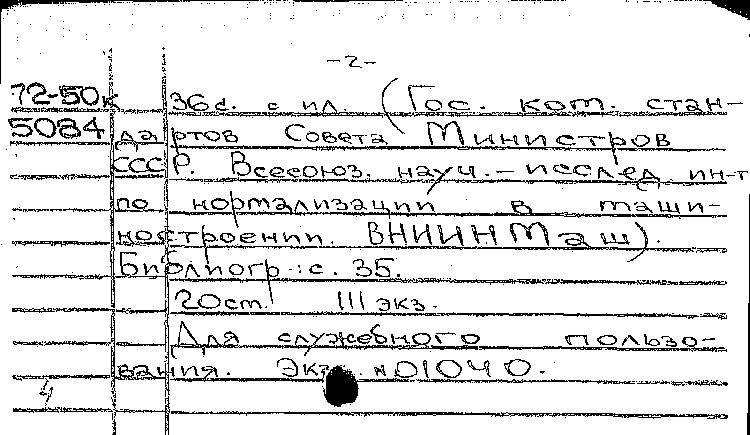 -2-
72-50к 36с. с ил. (Гос. ком. стан-
5084 дартов Совета Министров
СССР. Всесоюз. науч.-исслед. ин-т
по нормализации в маши-
ностроении. ВНИИНМаш).
Библиогр.: с. 35.
20см. 111 экз.
Для служебного пользо-
вания. Экз. №01040.
4